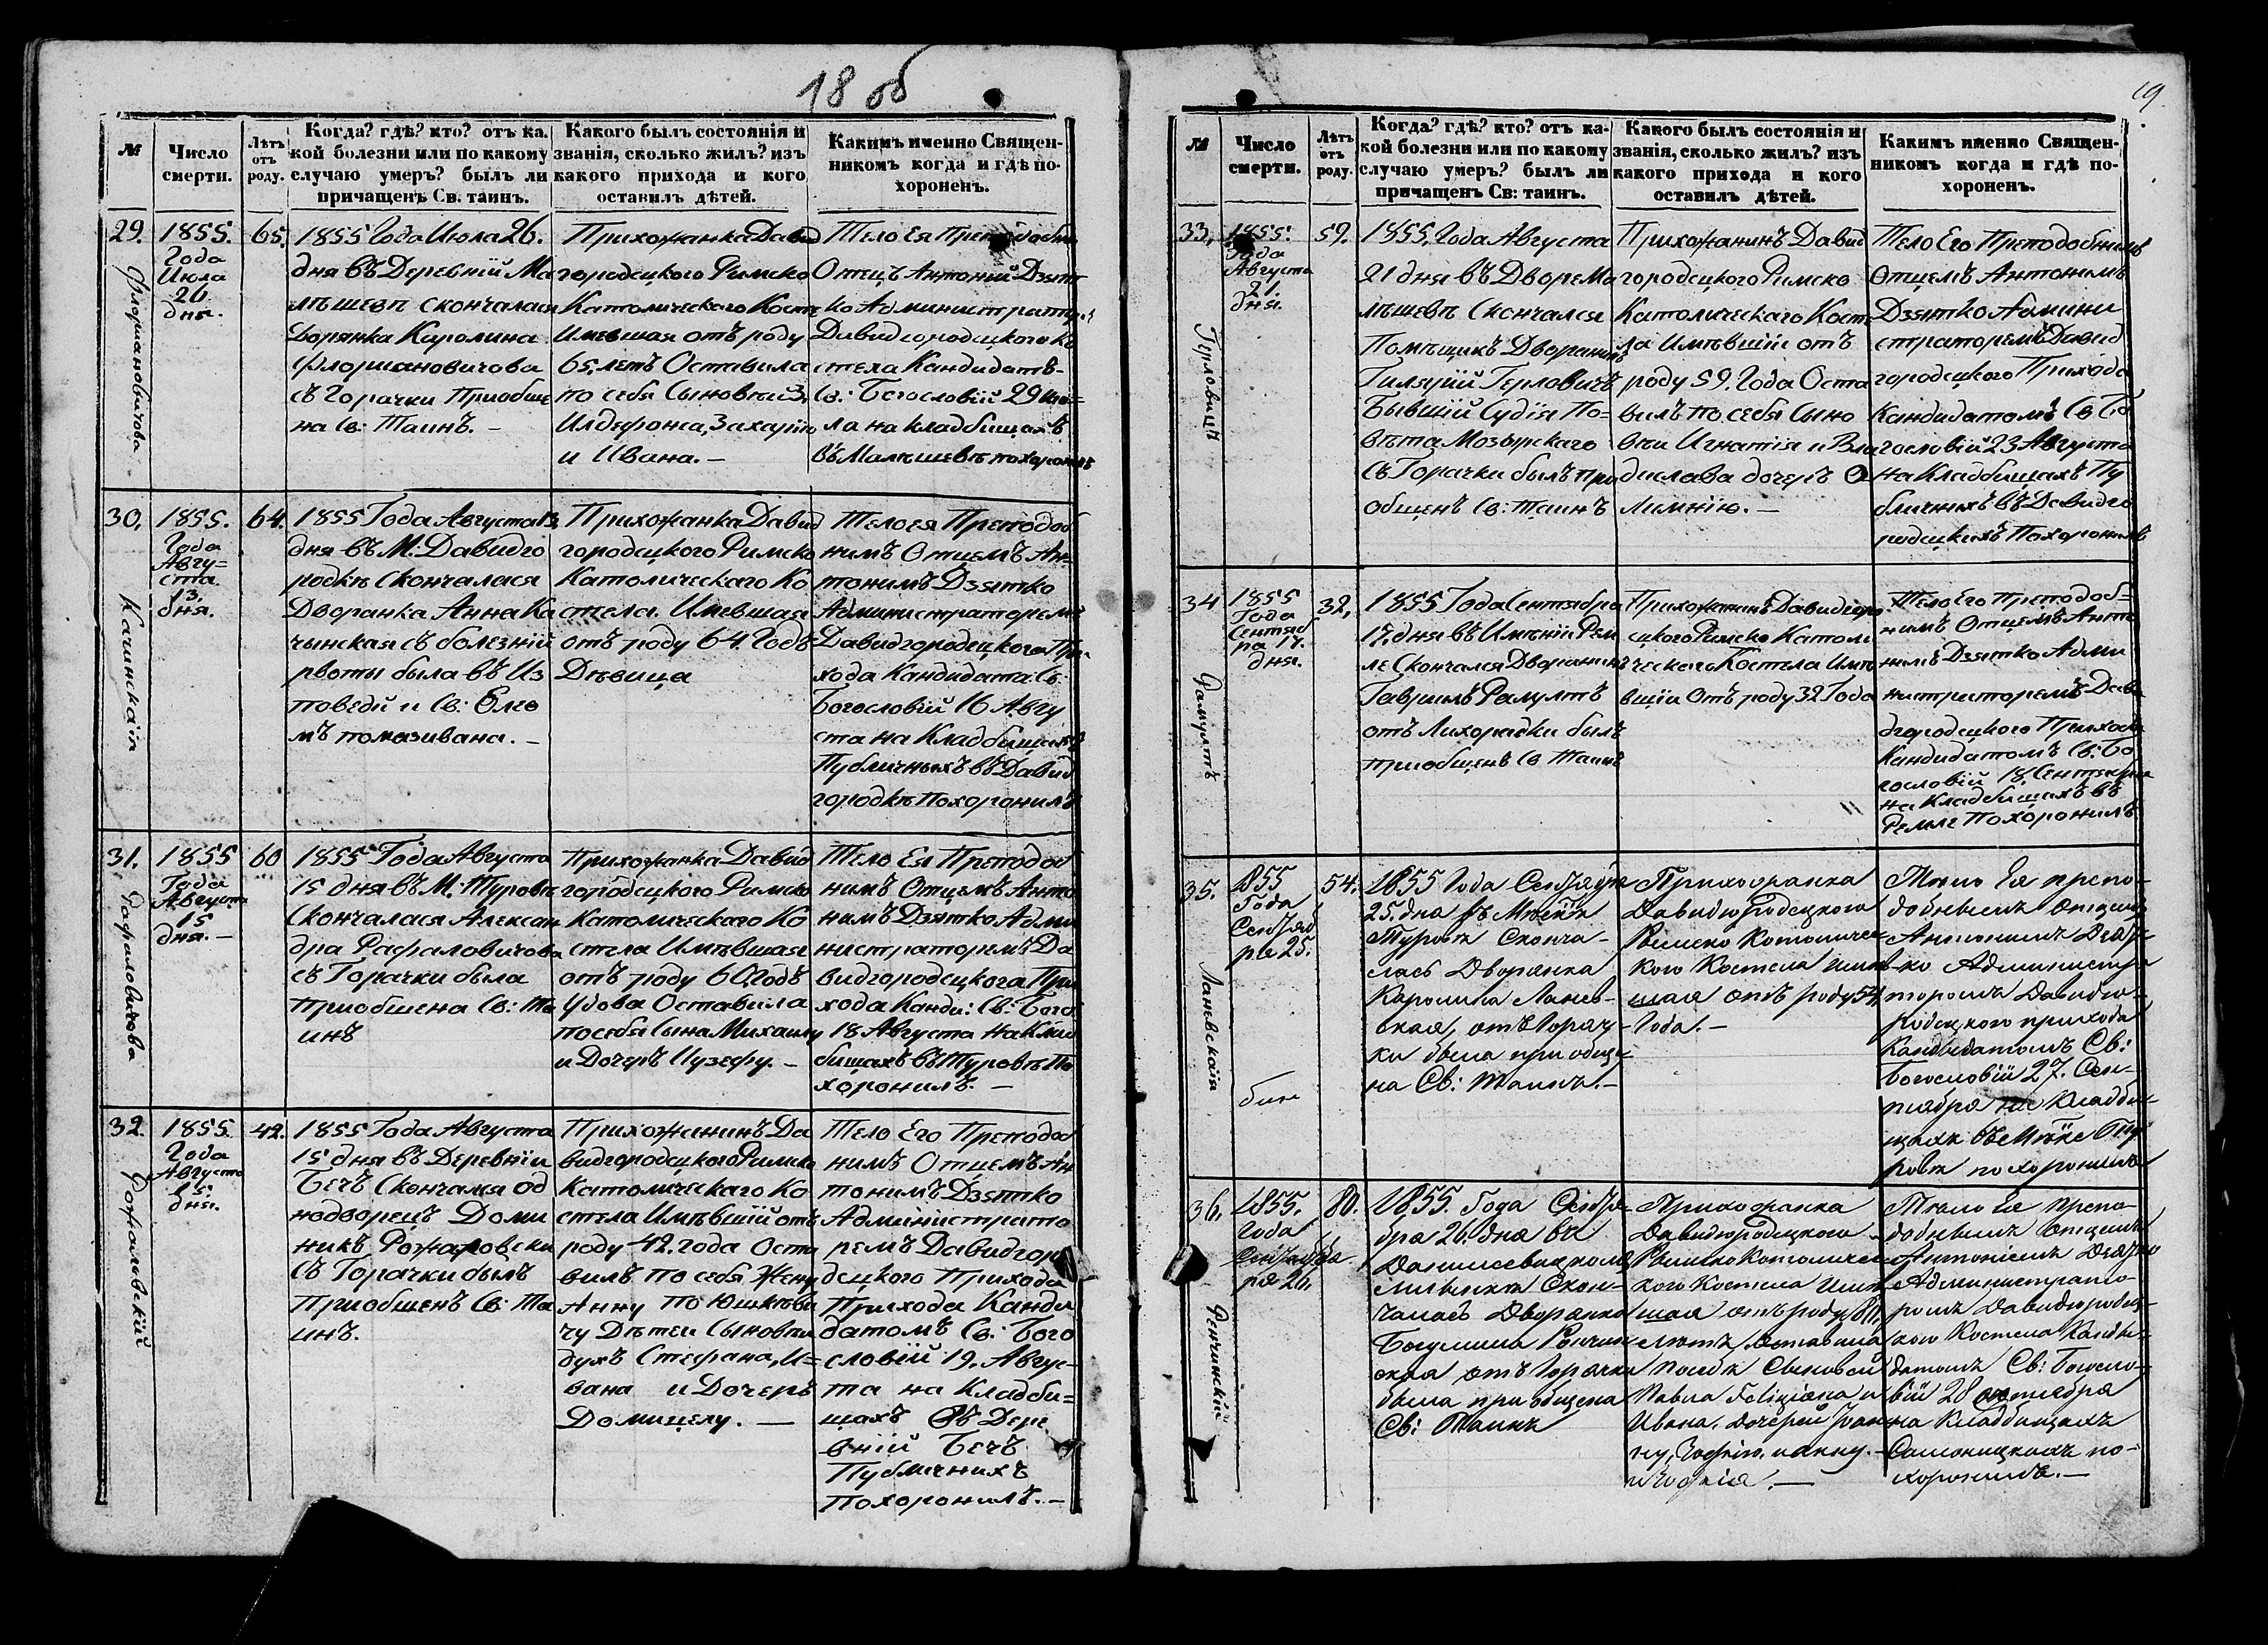 18 об
№
Число
смерти.
Лѣтъ
отъ
роду.
Когда? гдѣ? кто? отъ ка-
кой болезни или по какому
случаю умеръ? былъ ли
причащенъ Св. таинъ.
Какого былъ состоянія и
званія, сколько жилъ? изъ
какого прихода и кого
оставилъ дѣтей.
Какимъ именно Священ-
никомъ когда и гдѣ по-
хороненъ.
29.
Флориановичова
1855.
Года
Июла
26
дня.
65.
1855 Года Июла 26.
дня въ Деревнїй Ма
лѣшевѣ скончалася
Дорянка Каролина
Флориановичова
съ Горачки Приобще
на Св: Таинъ. –
Прихожанка Давид
городецкого Римско
Католическаго Косте
Имевшая отъ роду
65 летъ Оставила
по себя Сыновей 3,
Илдефонса, Захарию
и Ивана. –
Тело Ея
Отецъ Антоний Дзят
ко Администратор
Давидгородецкого Ко
стела Кандидатъ
Св: Богословїй 29 Ию=
ла на кладбищахъ
въ Малѣшевѣ похоронилъ
30,
Качинскаiя
1855.
Года
Авгу=
ста
13.
дня.
64.
1855 Года Августа 13
дня въ М: Давидго
родкѣ Скончалася
Дворанка Анна Ка
чынская съ болезнїй
рвоты была въ Из
поведй и Св: Олео
мъ помазивана. –
Прихожанка Давид
городецкого Римско
Католическаго Ко
стела. Имевшая
отъ роду 64 Годъ
Дѣвица
Тело ея Преподоб
нимъ Отцемъ Ан
тонимъ Дзятко
Администраторемъ
Давидгородецкого При
хода Кандидата Св:
Богословїй 16 Авгу
ста на Кладбищахъ
Публичныхъ въ Давид
городкѣ Похоронилъ
31.
Рафаловичова
1855
Года
Августа
15
дня. –
60
1855 Года Августа
15 дня въ М: Туровѣ
Скончалася Алексан
дра Рафаловичова
съ Горачки была
приобшена Св: Та
инъ
Прихожанка Давид
городецкого Римско
Католическаго Ко
стела Имѣвшая
отъ роду 60 Годъ
Удова Оставила
по себя Сына Михаилу
и Дочеръ Иузефу. –
Тело Ея Преподоб
нимъ Отцемъ Анто
нимъ Дзятко Адми
нистраторемъ Да
видгородецкого При
хода Канди: Св: Бого
18 Августа на Клад
бищахъ въ Туровѣ По
хоронилъ. –
32.
1855.
Года
Августа
15.
дня.
42.
1855 Года Августа
15 дня въ Деревнїи
Бечъ Скончался од
нодворецъ Доми
никъ
съ Горачки былъ
Приобщенъ Св: Та
инъ.
Прихожанинъ Да
видгородецкого Римско
Католическаго Ко
стела Имѣвшїй отъ
роду 42. года Оста
вилъ по себя Жену
Анну по
чу Дѣтей Сыновей
духъ Стефана, И=
вана и Дочеръ
Домицелу. –
Тело Его Преподоб
нимъ Отцемъ Ан
тонимъ Дзятко
Администрато
ремъ Давидгоро
децкого Прихода
Прихода Канди
датомъ Св: Бого
словїй 19. Авгус-
та на Кладби=
щахъ въ Дере
внїй Бечъ
Публичнихъ
Похоронилъ. –
19.
№
Число
смерти.
Лѣтъ
отъ
роду.
Когда? гдѣ? кто? отъ ка-
кой болезни или по какому
случаю умеръ? былъ ли
причащенъ Св: таинъ.
Какого былъ состоянія и
званія, сколько жилъ? изъ
какого прихода и кого
оставилъ дѣтей.
Какимъ именно Священ-
никомъ когда и гдѣ по-
хороненъ.
33,
Герловичъ
1855.
Года
Августа
21.
дня.
59.
1855, Года Августа
21 дня въ Дворе Ма
лѣшевѣ Скончался
Помѣщикъ Дворанинъ
Гиляцїй Герловичъ
Бывшїй Судїя По=
вѣта Мозырскаго
съ Горачки былъ При
общенъ Св: Таинъ
Прихожанинъ Давид
городецкого Римско
Католическаго Косте
ла Имѣвшїи отъ
роду 59. Года Оста
вилъ по себя Сыно
вьи Игнатїя и Вла
дислава дочеръ О
лимпїю. –
Тело Его Преподобнимъ
Отцемъ Антонимъ
Дзятко Админи
страторемъ Давид
городецкого Прихода
Кандидатомъ Св Бо
гословїй 23 Августа
на Кладбищахъ Пу
бличнихъ въ Давидго
родецкихъ Похоронилъ
34
Рамултъ
1855
Года
Сентяб
ра 17.
дня.
32,
1855 Года Сентябра
17, дня въ Имѣнїи Рем
ле Скончался Дворанинъ
Гаврилъ Рамултъ
отъ Лихорадки былъ
приобщенъ Св Таинъ
Прихожанинъ Давидгоро
децкого Римско Католи
ческаго Костела Имѣ
вшїи отъ роду 32 Года
Тело Его Преподоб=
нимъ Отцемъ Анто
нимъ Дзятко Адми
нистраторемъ Дави
дгородецкого Прихода
Кандидатомъ Св: Бо
гословїй 18 Сентября
на Кладбищахъ въ
Ремле Похоронилъ
35.
Ланевскаiя
1855
Года
Сентяб
ра 25.
54.
1855 Года Сентября
25. дня въ Мѣскѣ
Туровѣ Сконча-
лась Дворянка
Каролина Ланев-
ская, отъ Горяч-
ки была приобще-
на Св: Таинъ. –
Прихожанка
Давидгородецкого
Римско Католичес
кого Костела имѣ
шая отъ роду 54.
Года. –
Тѣло Ея препо-
добнымъ отцемъ
Антонимъ Дзят-
ко Администра
торомъ Давидго-
родецкого прихода
Кандидатомъ Св:
Богословїи 27. Сен-
тября на Кладби-
щахъ въ Мѣскѣ Ту-
ровѣ похоронилъ
36.
1855.
Года
ра 26.
80.
1855. Года Сентя-
бра 26. дня въ
Скон-
чалась Дворянка
отъ Горячки
была приобщена
Св: Таинъ
Прихожанка
Давидгородецкого
Римско Католичес
кого Костела имѣ
шая отъ роду 80.
лѣтъ, оставила
Сыновей
Павла Feliцiана и
Ивана. Дочерей Iоан
ну, Зофiю, и Анну. –
и Зофiя. –
Тѣло Ея препо-
добнымъ отцемъ
Антонiемъ Дзятко
Администрато-
ромъ Давидгородец-
кого Костела Канди-
датомъ Св: Богосло-
вїй 28 октября
на Кладбищахъ
по-
хоронилъ. –